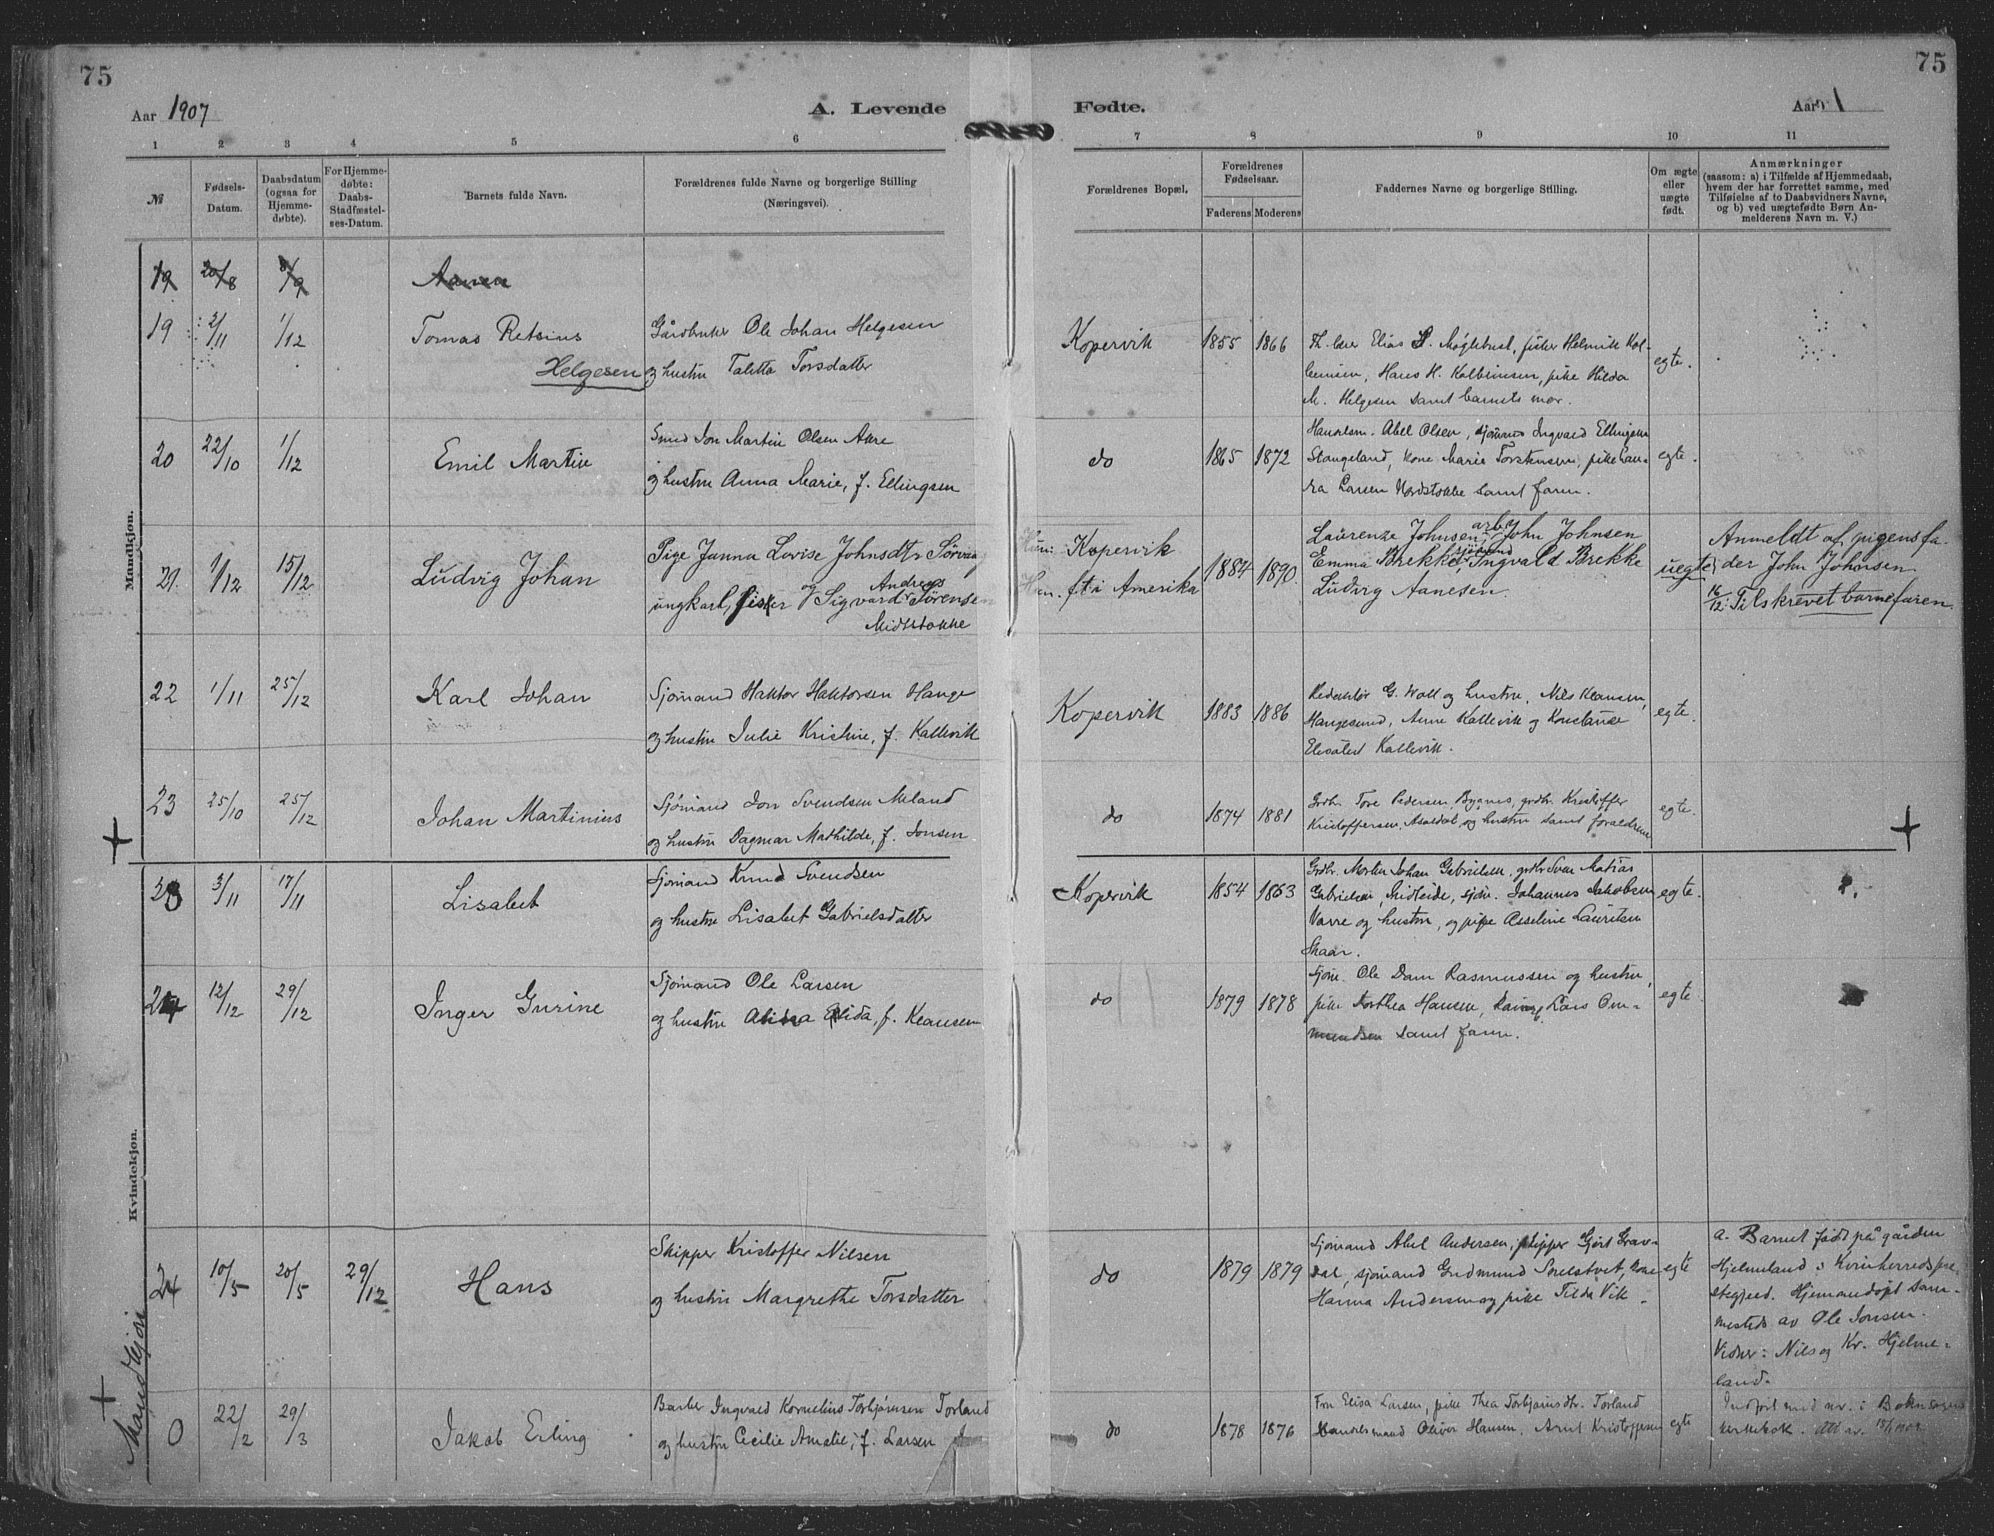 75
75
Aar 1907
A. Levende
Fødte.
Aar 1
1 2 3 4 5 6 7 8 9 10 11
№
Fødsels-
Datum.
Daabsdatum
(ogsaa for
Hjemme-
døbte).
For Hjemme-
døbte:
Daabs-
Stadfæstel-
ses-Datum.
Barnets fulde Navn.
Forældrenes fulde Navne og borgerlige Stilling
(Næringsvei).
Forældrenes Bopæl.
Forældrenes
Fødselsaar.
Faderens Moderens
Faddernes Navne og borgerlige Stilling.
Om ægte
eller
uægte
født.
Anmærkninger
(saasom: a) i Tilfælde af Hjemmedaab,
hvem der har forrettet samme, med
Tilføielse af to Daabsvidners Navne,
og b) ved uægtefødte Børn An-
melderens Navn m. V.)
Mandkjøn.
19 20/8 8/9
19 2/11 1/12
Tomas Retsius
Helgesen
Gårdbruker Ole Johan Helgesen
og hustru Taletta Torsdatter
Kopervik 1855 1866
Elias Møgletust, fisker Helmik Kol-
beinsen, Hans H. Kolbeinsen, pike Hilda
M. Helgesen samt barnets mor.
egte.
20 22/10 1/12
Emil Martin
Smed Jon Martin Olsen Akre
og hustru Anna Marie, f. Ellingsen
do 1865 1872
Handelsm. Abel Olsen, sjømand Ingvald Ellingsen
Stangeland, kone Marie Torstensen, pike Lau-
ra Larsen Nordstokke samt faren.
egte.
21 1/12 15/12
Ludvig Johan
Pige Janna Lovise Johnsdtr Sørvaag
og Andreas
ungkarl, fisker Sigvard Sørensen
Midtstokke
Hun: Kopervik
Han. ft i Amerika
1884 1890.
Laurenze Johnsen, arb. John Johnsen
Emma Brekke, sjømand Ingvald Brekke
Ludvig Aanesen.
uegte
Anmeldt af pigens fa-
der John Johnsen
16/12: Tilskrevet barnefaren.
22 1/11 25/12
Karl Johan
Sjømand Haktor Haktorsen Hauge
og hustru Julie Kristine, f. Kallevik
Kopervik 1883 1886
Redaktør G. Woll og hustru, Nils Klausen,
Haugesund, Anne Kallevik og Konstanse
Elisabet Kallevik.
egte.
23 25/10 25/12
Johan Martinius
Sjømand Jon Svendsen Meland
og hustru Dagmar Mathilde, f. Jonsen
do 1874 1881
Grdbr. Tore Pedersen Bygnes, grdbr. Kristoffer
Kristoffersen, Aasdal og hustru samt foreldrene
egte.
Kvindekjøn.
3/11 17/11
Lisabet
Sjømand Knud Svendsen
og hustru Lisabet Gabrielsdatter
Kopervik 1854 1863
Grdbr. Morten Johan Gabrielsen, grdbr Sven Matias
Gabrielsen, Midteide, sjøm. Johannes Jakobsen
Varre og hustru, og pike Asseline Lauritsen
Skaar.
egte.
24 12/12 29/12
Inger Gurine
Sjømand Ole Larsen
og hustru Alida, f. Klausen
do 1879 1878
Sjøm. Ole Dam Rasmussen og hustru,
pike Dorthea Hansen, Lars Om-
mundsen samt faren.
egte
Mandkjøn
24 10/5 20/5 29/12
Hans
Skipper Kristoffer Nilsen
og hustru Margrethe Torsdatter
do 1879 1879
Sjømand Abel Andersen, skipper Gjert Grav-
dal, sjømand Gudmund Snelstvet, kone
Hanna Andersen og pike Tilda Vik.
egte
a. Barnet født på gården
Hjelmeland i Kvinherreds pre-
stegjeld. Hjemmedøpt sam-
mesteds av Ole Jonsen.
Vidner: Nils og Kr. Hjelme-
land.
0 22/2 29/3
Jakob Erling
Barber Ingvald Kornelius Torbjørnsen Torland
og hustru Cecilie Amalie, f. Larsen
do 1878 1876
Fru Elisa Larsen, pike Thea Torbjørnsdtr. Torland
Handelsmand Oliver Hansen, Arnt Kristoffersen
egte
Indført med nr. i Bokn sogns
kirkebok.